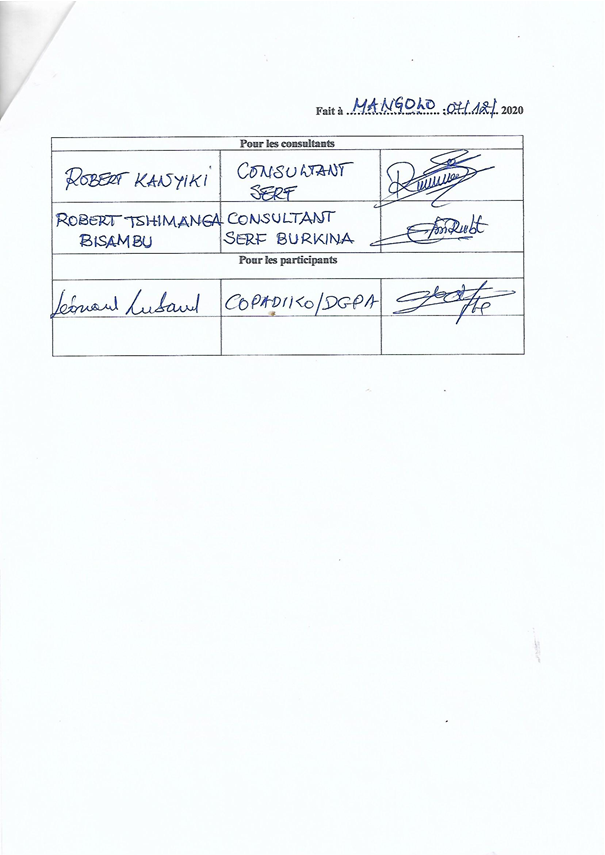 Fait à MANGOLO : 07/12/ 2020
Pour les consultants
ROBERT KANYIKI CONSULTANT
SERF
ROBERT TSHIMANGA CONSULTANT
BISAMBU SERF BURKINA
Pour les participants
Léonard COPADIIKO/DGPA